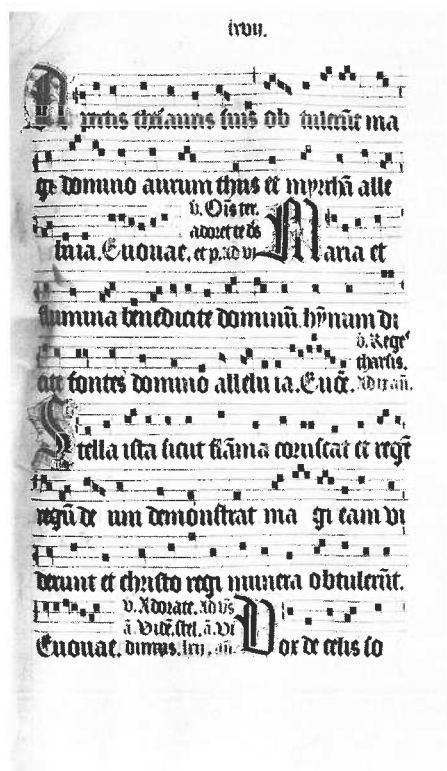 lxvii.
Apertis thesauris suis ob tulerūt ma
gi domino aurum thus et myrrhā alle
v. Oīs ter.
adoret te ds̄
luia. Euouae. et p. Ad vi Maria et
flumina benedicite dominū. hȳnum di
v. Reges
tharsis.
cite fontes domino allelu ia. Euoē.
Stella ista sicut flāma coruscat et regē
regū de um demonstrat ma gi eam vi
derunt et christo regi munera obtulerūt.
v. Adorate. Ad vs̄
ā. Vidē. stel. ā. Vi
Euouae. dimus. lxii. añ. Vox de celis so